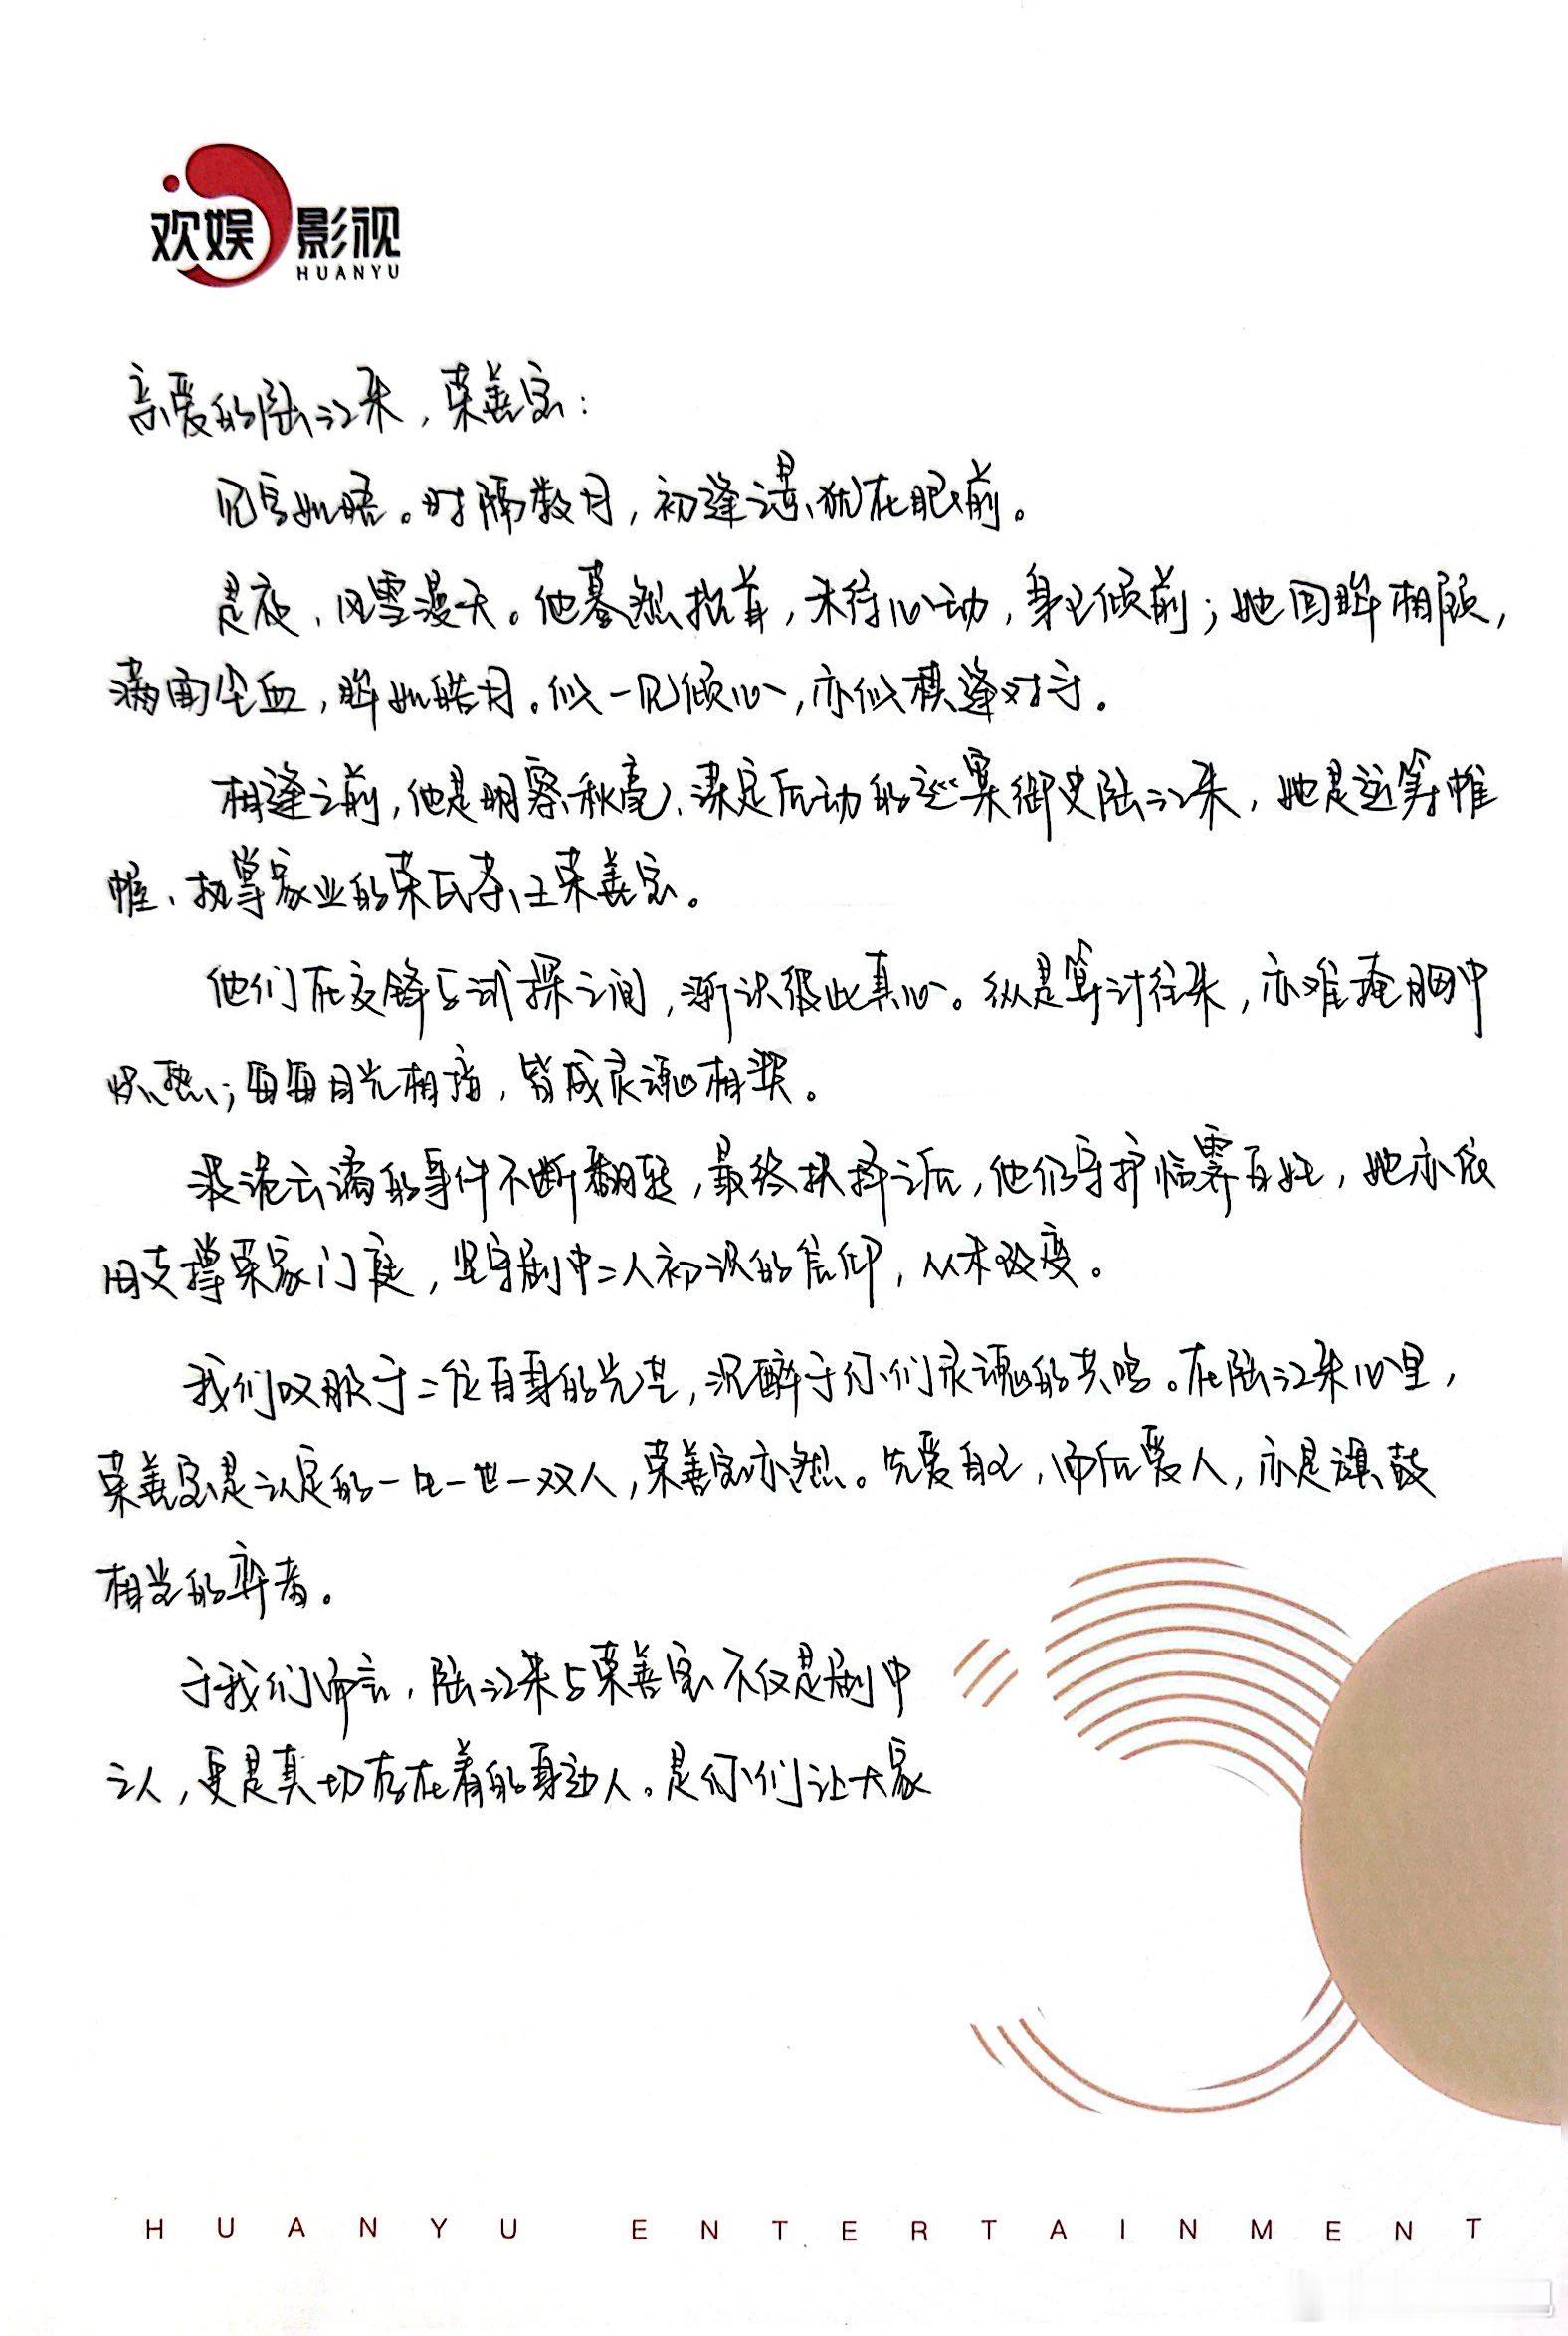 欢娱影视
HUANYU
亲爱的陆江来，荣善宝：
见字如晤。时隔数月，初逢之景犹在眼前。
是夜，风雪漫天。他蓦然抬首，未待心动，身已倾前；她回眸相顾，
满面尘血，眸如皓月。似一见倾心，亦似棋逢对手。
相逢之前，他是明察秋毫、谋定后动的巡案御史陆江来，她是运筹帷
幄、执掌家业的荣氏茶主荣善宝。
他们在交锋与试探之间，渐识彼此真心。纵是算计往来，亦难掩胸中
炽热；每每目光相撞，皆成灵魂相契。
波诡云谲的事件不断翻转，最终抉择之后，他仍守护临霁百姓，她亦依
旧支撑荣家门庭，坚守剧中二人初识的信仰，从未改变。
我们叹服于二位自身的光芒，沉醉于你们灵魂的共鸣。在陆江来心里，
荣善宝是认定的一生一世一双人，荣善宝亦然。先爱自己，而后爱人，亦是旗鼓
相当的弈者。
于我们而言，陆江来与荣善宝不仅是剧中
之人，更是真切存在着的身边人。是你们让大家
HUANYU ENTERTAINMENT